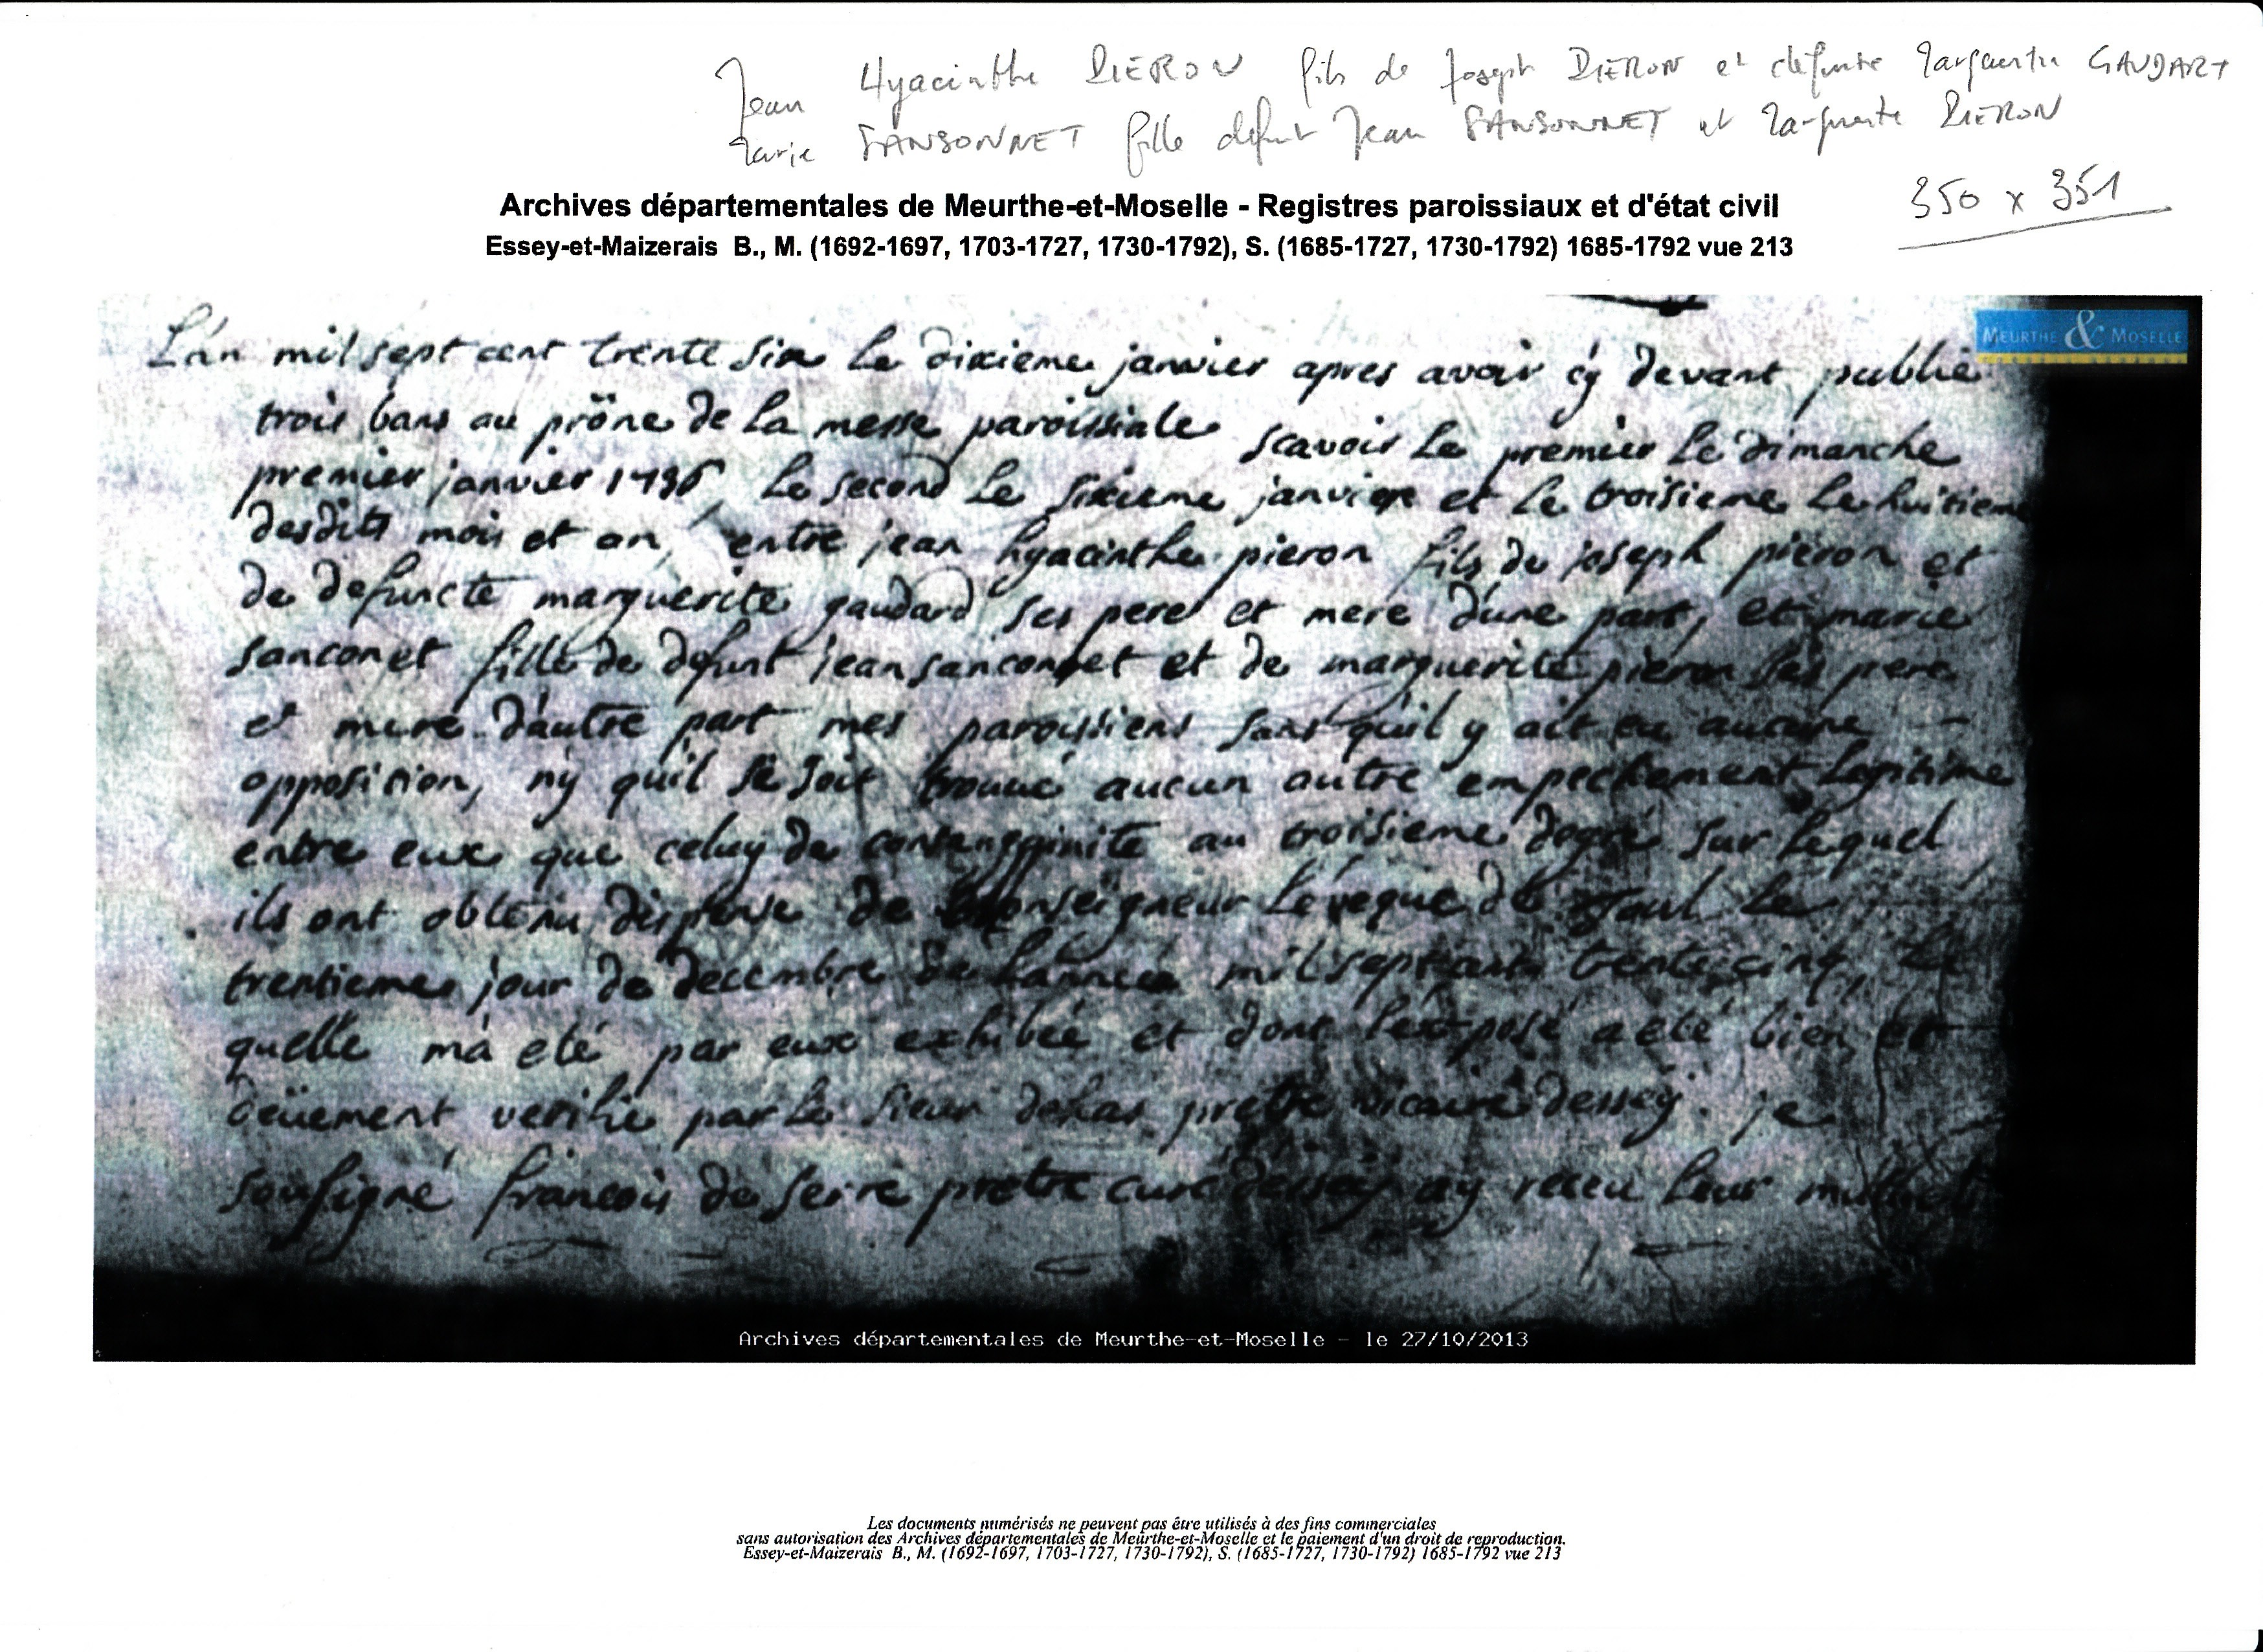 Jean Hyacinthe PIERON fils de Joseph PIERON et défunte Marguerite GAUDART
Marie SANSONNET fille défunt Jean SANSONNET et Marguerite PIERON
350 x 351
Archives départementales de Meurthe-et-Moselle - Registres paroissiaux et d'état civil
Essey-et-Maizerais B., M. (1692-1697, 1703-1727, 1730-1792), S. (1685-1727, 1730-1792) 1685-1792 vue 213
MEURTHE & MOSELLE
L'an mil sept cent trente six le dixieme janvier apres avoir cÿ devant publie
trois bans au prône de la messe paroissiale scavoir le premier le dimanche
premier janvier 1736, le second le sixieme janvier et le troisieme le huitieme
desdits mois et an, entre jean hyacinthe pieron fils de joseph pieron et
de defuncte marguerite gaudard ses pere et mere d'une part, et marie
sanconet fille de defunt jean sanconnet et de marguerite pieron ses pere
et mere d'autre part mes paroissiens sans qu'il y ait eu aucune
opposition, n'y qu'il se soit trouué aucun autre empechement legitime
entre eux que celuy de au troisieme degré sur lequel
ils ont obtenu dispense de monseigneur l'éveque de Toul le
trentieme jour de decembre de l'année mil sept cent trente cinq, la
quelle m'a eté par eux exhibée et dont l'exposé a eté bien et
deüement verifié par le sieur prestre vicaire d'essey. je
sousigné francois de serre pretre curé d'essey ay receu leur mutuel
Archives départementales de Meurthe-et-Moselle - le 27/10/2013
Les documents numérisés ne peuvent pas être utilisés à des fins commerciales
sans autorisation des Archives départementales de Meurthe-et-Moselle et le paiement d'un droit de reproduction.
Essey-et-Maizerais B., M. (1692-1697, 1703-1727, 1730-1792), S. (1685-1727, 1730-1792) 1685-1792 vue 213